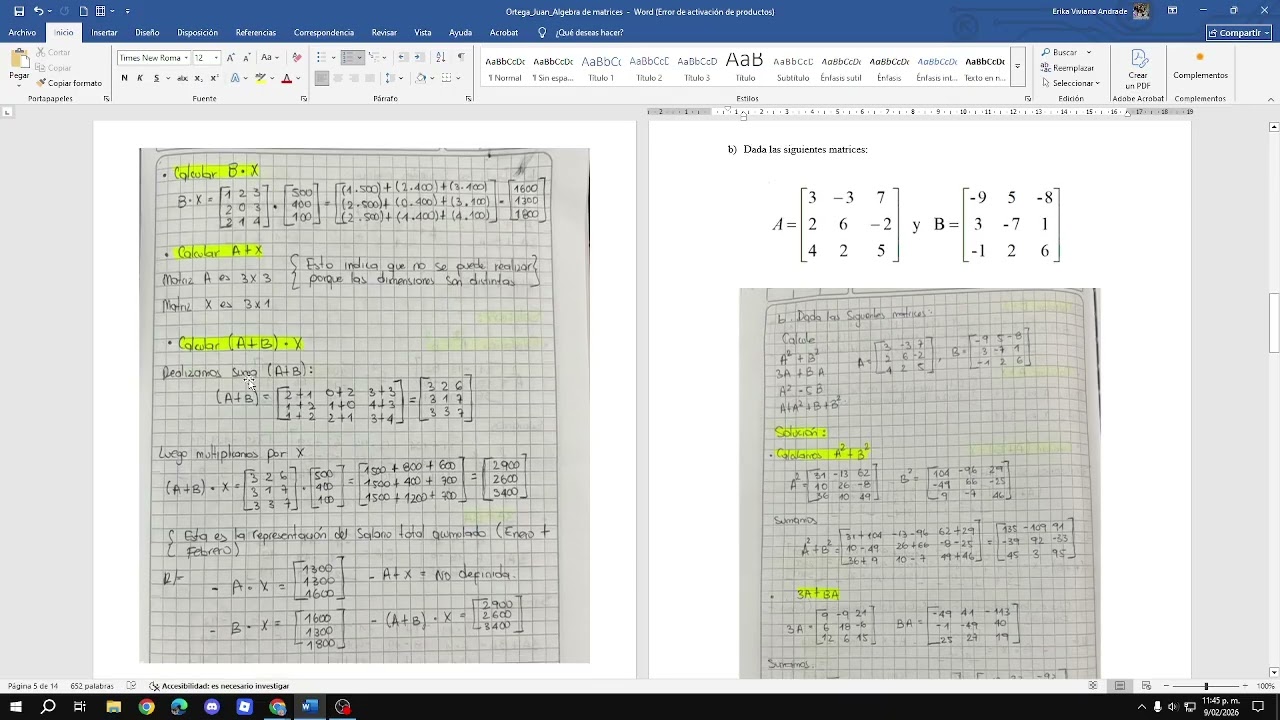 Ortega_Juan_Algebra de matrices - Word (Error de activación de productos)
Erika Viviana Andrade
Archivo Inicio Insertar Diseño Disposición Referencias Correspondencia Revisar Vista Ayuda Acrobat ¿Qué deseas hacer?
Compartir
Pegar
Cortar
Copiar
Copiar formato
Portapapeles
Times New Roma 12
N K S abc x₂ x²
Fuente
Párrafo
AaBbCcDc AaBbCcDc AaBbCc AaBbCcC AaBbCcD AaB AaBbCcC AaBbCcDc AaBbCcDc AaBbCcDc AaBbCcDc
¶ Normal ¶ Sin espa... Título 1 Título 2 Título 3 Título Subtítulo Énfasis sutil Énfasis Énfasis int... Texto en n...
Estilos
Buscar
Reemplazar
Seleccionar
Edición
Crear un PDF
Adobe Acrobat
Complementos
Complementos
• Calcular B • X
B • X = [1 2 3 • [500 = [(1.500)+(2.400)+(3.100) = [1600
2 0 3 400 (2.500)+(0.400)+(3.100) 1300
2 1 4] 100] (2.500)+(1.400)+(4.100)] 1800]
• Calcular A+X
Matriz A es 3x3
{ Esto indica que no se puede realizar }
{ porque las dimensiones son distintas }
Matriz X es 3x1
• Calcular (A+B) • X
Realizamos suma (A+B):
(A+B) = [2+1 0+2 3+3 = [3 2 6
1+2 1+0 4+3 3 1 7
1+2 2+1 3+4] 3 3 7]
Luego multiplicamos por X
(A+B) • X = [3 2 6 • [500 = [1500 + 800 + 600 = [2900
3 1 7 400 1500 + 400 + 700 2600
3 3 7] 100] 1500 + 1200 + 700] 3400]
{ Esta es la representación del Salario total acumulado (Enero +
{ Febrero)
R/-
- A • X = [1300
1300
1600]
- A+X = No definida.
- B • X = [1600
1300
1800]
- (A+B) • X = [2900
2600
3400]
b) Dada las siguientes matrices:
A = [3 −3 7 y B = [-9 5 -8
2 6 −2 3 -7 1
4 2 5] -1 2 6]
b. Dada las Siguientes matrices:
Calcule
A² + B²
3A + BA
A² - 5B
A+A²+B+B²
A = [3 -3 7
2 6 -2
4 2 5],
B = [-9 5 -8
3 -7 1
-1 2 6]
Solución:
• Calculamos A² + B²
A² = [31 -13 62
10 26 -8
36 10 49]
B² = [104 -96 29
-49 66 -25
9 -7 46]
Sumamos
A²+B² = [31+104 -13-96 62+29 = [135 -109 91
10-49 26+66 -8-25 -39 92 -33
36+9 10-7 49+46] 45 3 95]
• 3A + BA
3A = [9 -9 21
6 18 -6
12 6 15]
BA = [-49 41 -113
-1 -49 40
25 27 19]
Sumamos:
Página 5 de 14 652 palabras Accesibilidad: es necesario investigar
100%
11:45 p. m.
9/02/2026